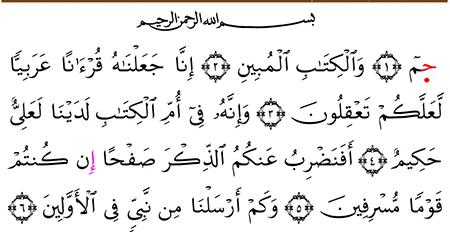 بِسْمِ ٱللَّهِ ٱلرَّحْمَٰنِ ٱلرَّحِيمِ
حٜمٓ ﴿١﴾ وَٱلْكِتَٰبِ ٱلْمُبِينِ ﴿٢﴾ إِنَّا جَعَلْنَٰهُ قُرْءَٰنًا عَرَبِيًّا
لَّعَلَّكُمْ تَعْقِلُونَ ﴿٣﴾ وَإِنَّهُۥ فِىٓ أُمِّ ٱلْكِتَٰبِ لَدَيْنَا لَعَلِىٌّ
حَكِيمٌ ﴿٤﴾ أَفَنَضْرِبُ عَنكُمُ ٱلذِّكْرَ صَفْحًا إِن كُنتُمْ
قَوْمًا مُّسْرِفِينَ ﴿٥﴾ وَكَمْ أَرْسَلْنَا مِن نَّبِىٍّ فِى ٱلْأَوَّلِينَ ﴿٦﴾